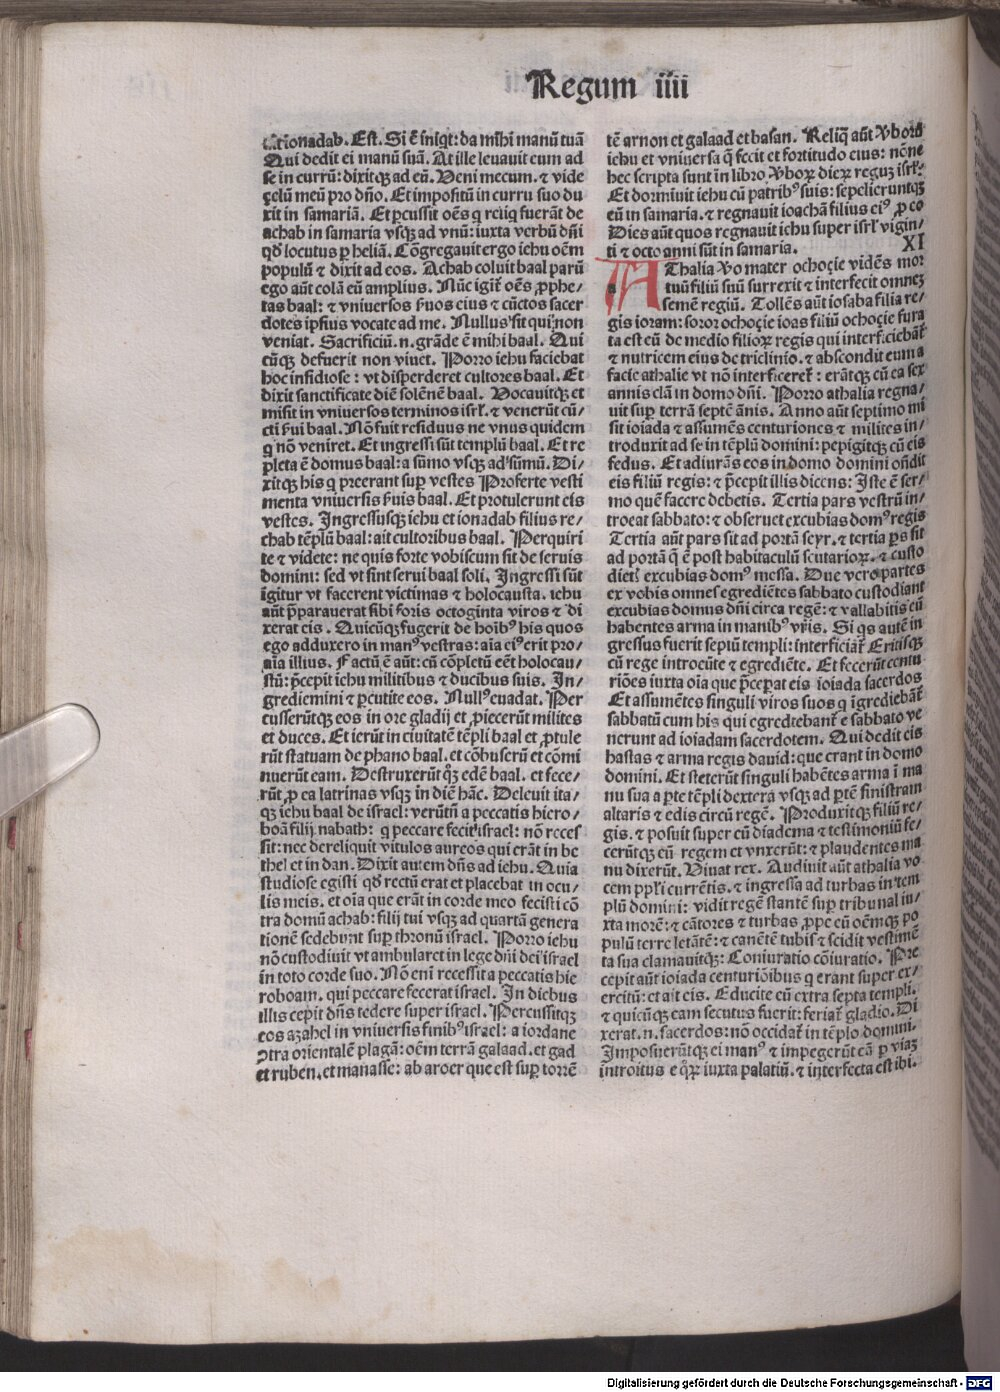 Regum iiii
et ionadab. Est. Si ē iniqt: da mihi manū tuā
Qui dedit ei manū suā. At ille leuauit eum ad
se in currū: dixitqꝫ ad eū. Veni mecum. ⁊ vide
çelū meū pro dño. Et impositū in curru suo du
xit in samariā. Et ꝑcussit oēs q reliq fuerāt de
achab in samaria vsqꝫ ad vnū: iuxta verbū dñi
qð locutus ꝑ heliā. Cōgregauit ergo iehu oēm
populū ⁊ dixit ad eos. Achab coluit baal parū
ego aūt colā eū amplius. Nūc igit̄ oēs ꝓphe/
tas baal: ⁊ vniuersos ẜuos eius ⁊ cūctos sacer
dotes ipsius vocate ad me. Nullus sit qui non
veniat. Sacrificiū .n. grāde ē mihi baal. Qui
cūqꝫ defuerit non viuet. Porro iehu faciebat
hoc insidiose: vt disperderet cultores baal. Et
dixit sanctificate diē solēnē baal. Vocauitqꝫ et
misit in vniuersos terminos isrł. ⁊ venerūt cū/
cti ẜui baal. Nō fuit residuus ne vnus quidem
q nō veniret. Et ingressi sūt templū baal. Et re
pleta ē domus baal: a sūmo vsqꝫ ad sūmū. Di/
xitqꝫ his q preerant suꝑ vestes Proferte vesti
menta vniuersis ẜuis baal. Et protulerunt eis
vestes. Ingressusqꝫ iehu et ionadab filius re/
chab tēplū baal: ait cultoribus baal. Perquiri
te ⁊ videte: ne quis forte vobiscum sit de seruis
domini: sed vt sint serui baal soli. Ingressi sūt
igitur vt facerent victimas ⁊ holocausta. iehu
aūt p̄parauerat sibi foris octoginta viros ⁊ di
xerat eis. Quicūqꝫ fugerit de hoībꝰ his quos
ego adduxero in manꝰ vestras: aīa eiꝰ erit pro/
aīa illius. Factū ē aūt: cū cōpletū eēt holocau/
stū: p̄cepit iehu militibus ⁊ ducibus suis. In/
gredimini ⁊ ꝑcutite eos. Nullꝰ euadat. Per
cusserūtqꝫ eos in ore gladij et ꝓiecerūt milites
et duces. Et ierūt in ciuitatē tēpli baal et ꝓtule
rūt statuam de phano baal. et cōbuserū et cōmi
nuerūt eam. Destruxerūt qꝫ edē baal. et fece/
rūt ꝓ ea latrinas vsqꝫ in diē hāc. Deleuit ita/
qꝫ iehu baal de israel: verūtñ a peccatis hiero/
boā filij nabath: q peccare fecit israel: nō reces
sit: nec dereliquit vitulos aureos qui erāt in be
thel et in dan. Dixit autem dñs ad iehu. Quia
studiose egisti qð rectū erat et placebat in ocu/
lis meis. et oīa que erāt in corde meo fecisti cō
tra domū achab: filij tui vsqꝫ ad quartā genera
tionē sedebunt suꝑ thronū israel. Porro iehu
nō custodiuit vt ambularet in lege dñi dei israel
in toto corde suo. Nō enī recessit a peccatis hie
roboam. qui peccare fecerat israel. In diebus
illis cepit dñs tedere super israel. Percussitqꝫ
eos azahel in vniuersis finibꝰ israel: a iordane
ꝯtra orientalē plagā: oēm terrā galaad. et gad
et ruben. et manasse: ab aroer que est suꝑ torrē
tē arnon et galaad et basan. Reliq aūt ꝟborū
iehu et vniuersa q̄ fecit et fortitudo eius: nōne
hec scripta sunt in libro ꝟboꝝ dieꝝ reguꝫ isrł.
Et dormiuit iehu cū patribꝰ suis: sepelieruntqꝫ
eū in samaria. ⁊ regnauit ioachā filius eiꝰ ꝓ eo
Dies aūt quos regnauit iehu super isrł vigin/
ti ⁊ octo anni sūt in samaria. XI
AThalia ꝟo mater ochoçie vidēs mor
tuū filiū suū surrexit ⁊ interfecit omneꝫ
semē regiū. Tollēs aūt iosaba filia re/
gis ioram: soror ochoçie ioas filiū ochoçie fura
ta est eū de medio filioꝝ regis qui interficiebāt̄
⁊ nutricem eius de triclinio. ⁊ abscondit eum a
facie athalie vt nō interficeret̄: erātqꝫ cū ea sex
annis clā in domo dñi. Porro athalia regna/
uit suꝑ terrā septē ānis. Anno aūt septimo mi
sit ioiada ⁊ assumēs centuriones ⁊ milites in/
troduxit ad se in tēplū domini: pepigitqꝫ cū eis
fedus. Et adiurās eos in domo domini oñdit
eis filiū regis: ⁊ p̄cepit illis dicens: Iste ē ser/
mo quē facere debetis. Tertia pars vestrū in/
troeat sabbato: ⁊ obseruet excubias domꝰ regis
Tertia aūt pars sit ad portā seyr. ⁊ tertia ꝑs sit
ad portā q̄ ē post habitaculū scutarioꝝ. ⁊ custo
dietꝭ excubias domꝰ messa. Due vero partes
ex vobis omnes egrediētes sabbato custodiant
excubias domus dñi circa regē: ⁊ vallabitis eū
habentes arma in manibꝰ vr̄is. Si qs autē in
gressus fuerit septū templi: interficiat̄ Eritisqꝫ
cū rege introeūte ⁊ egrediēte. Et fecerūt centu
riōes iuxta oīa que p̄ceꝑat eis ioiada sacerdos
Et assumētes singuli viros suos q īgrediebāt̄
sabbatū cum his qui egrediebant̄ e sabbato ve
nerunt ad ioiadam sacerdotem. Qui dedit eis
hastas ⁊ arma regis dauid: que erant in domo
domini. Et steterūt singuli habētes arma ī ma
nu sua a ꝑte tēpli dextera vsqꝫ ad ꝑtē sinistram
altaris ⁊ edis circū regē. Produxitqꝫ filiū re/
gis. ⁊ posuit super eū diadema ⁊ testimoniū fe/
cerūtqꝫ eū regem et vnxerūt: ⁊ plaudentes ma
nu dixerūt. Viuat rex. Audiuit aūt athalia vo
cem ppłi currētis. ⁊ ingressa ad turbas in tem
plū domini: vidit regē stantē suꝑ tribunal iu/
xta morē: ⁊ cātores ⁊ turbas ꝓpe eū oēmqꝫ po
pulū terre letātē: ⁊ canētē tubis ⁊ scidit vestimē
ta sua clamauitqꝫ: Coniuratio cōiuratio. Pre
cepit aūt ioiada centuriōibus q erant super ex/
ercitū: et ait eis. Educite eū extra septa templi.
⁊ quicūqꝫ eam secutus fuerit: feriat̄ gladio. Di
xerat .n. sacerdos: nō occidat̄ in tēplo domini.
Imposuerūtqꝫ ei manꝰ ⁊ impegerūt eā ꝑ viaꝫ
introitus eqꝝ iuxta palatiū. ⁊ interfecta est ibi.
Digitalisierung gefördert durch die Deutsche Forschungsgemeinschaft - DFG